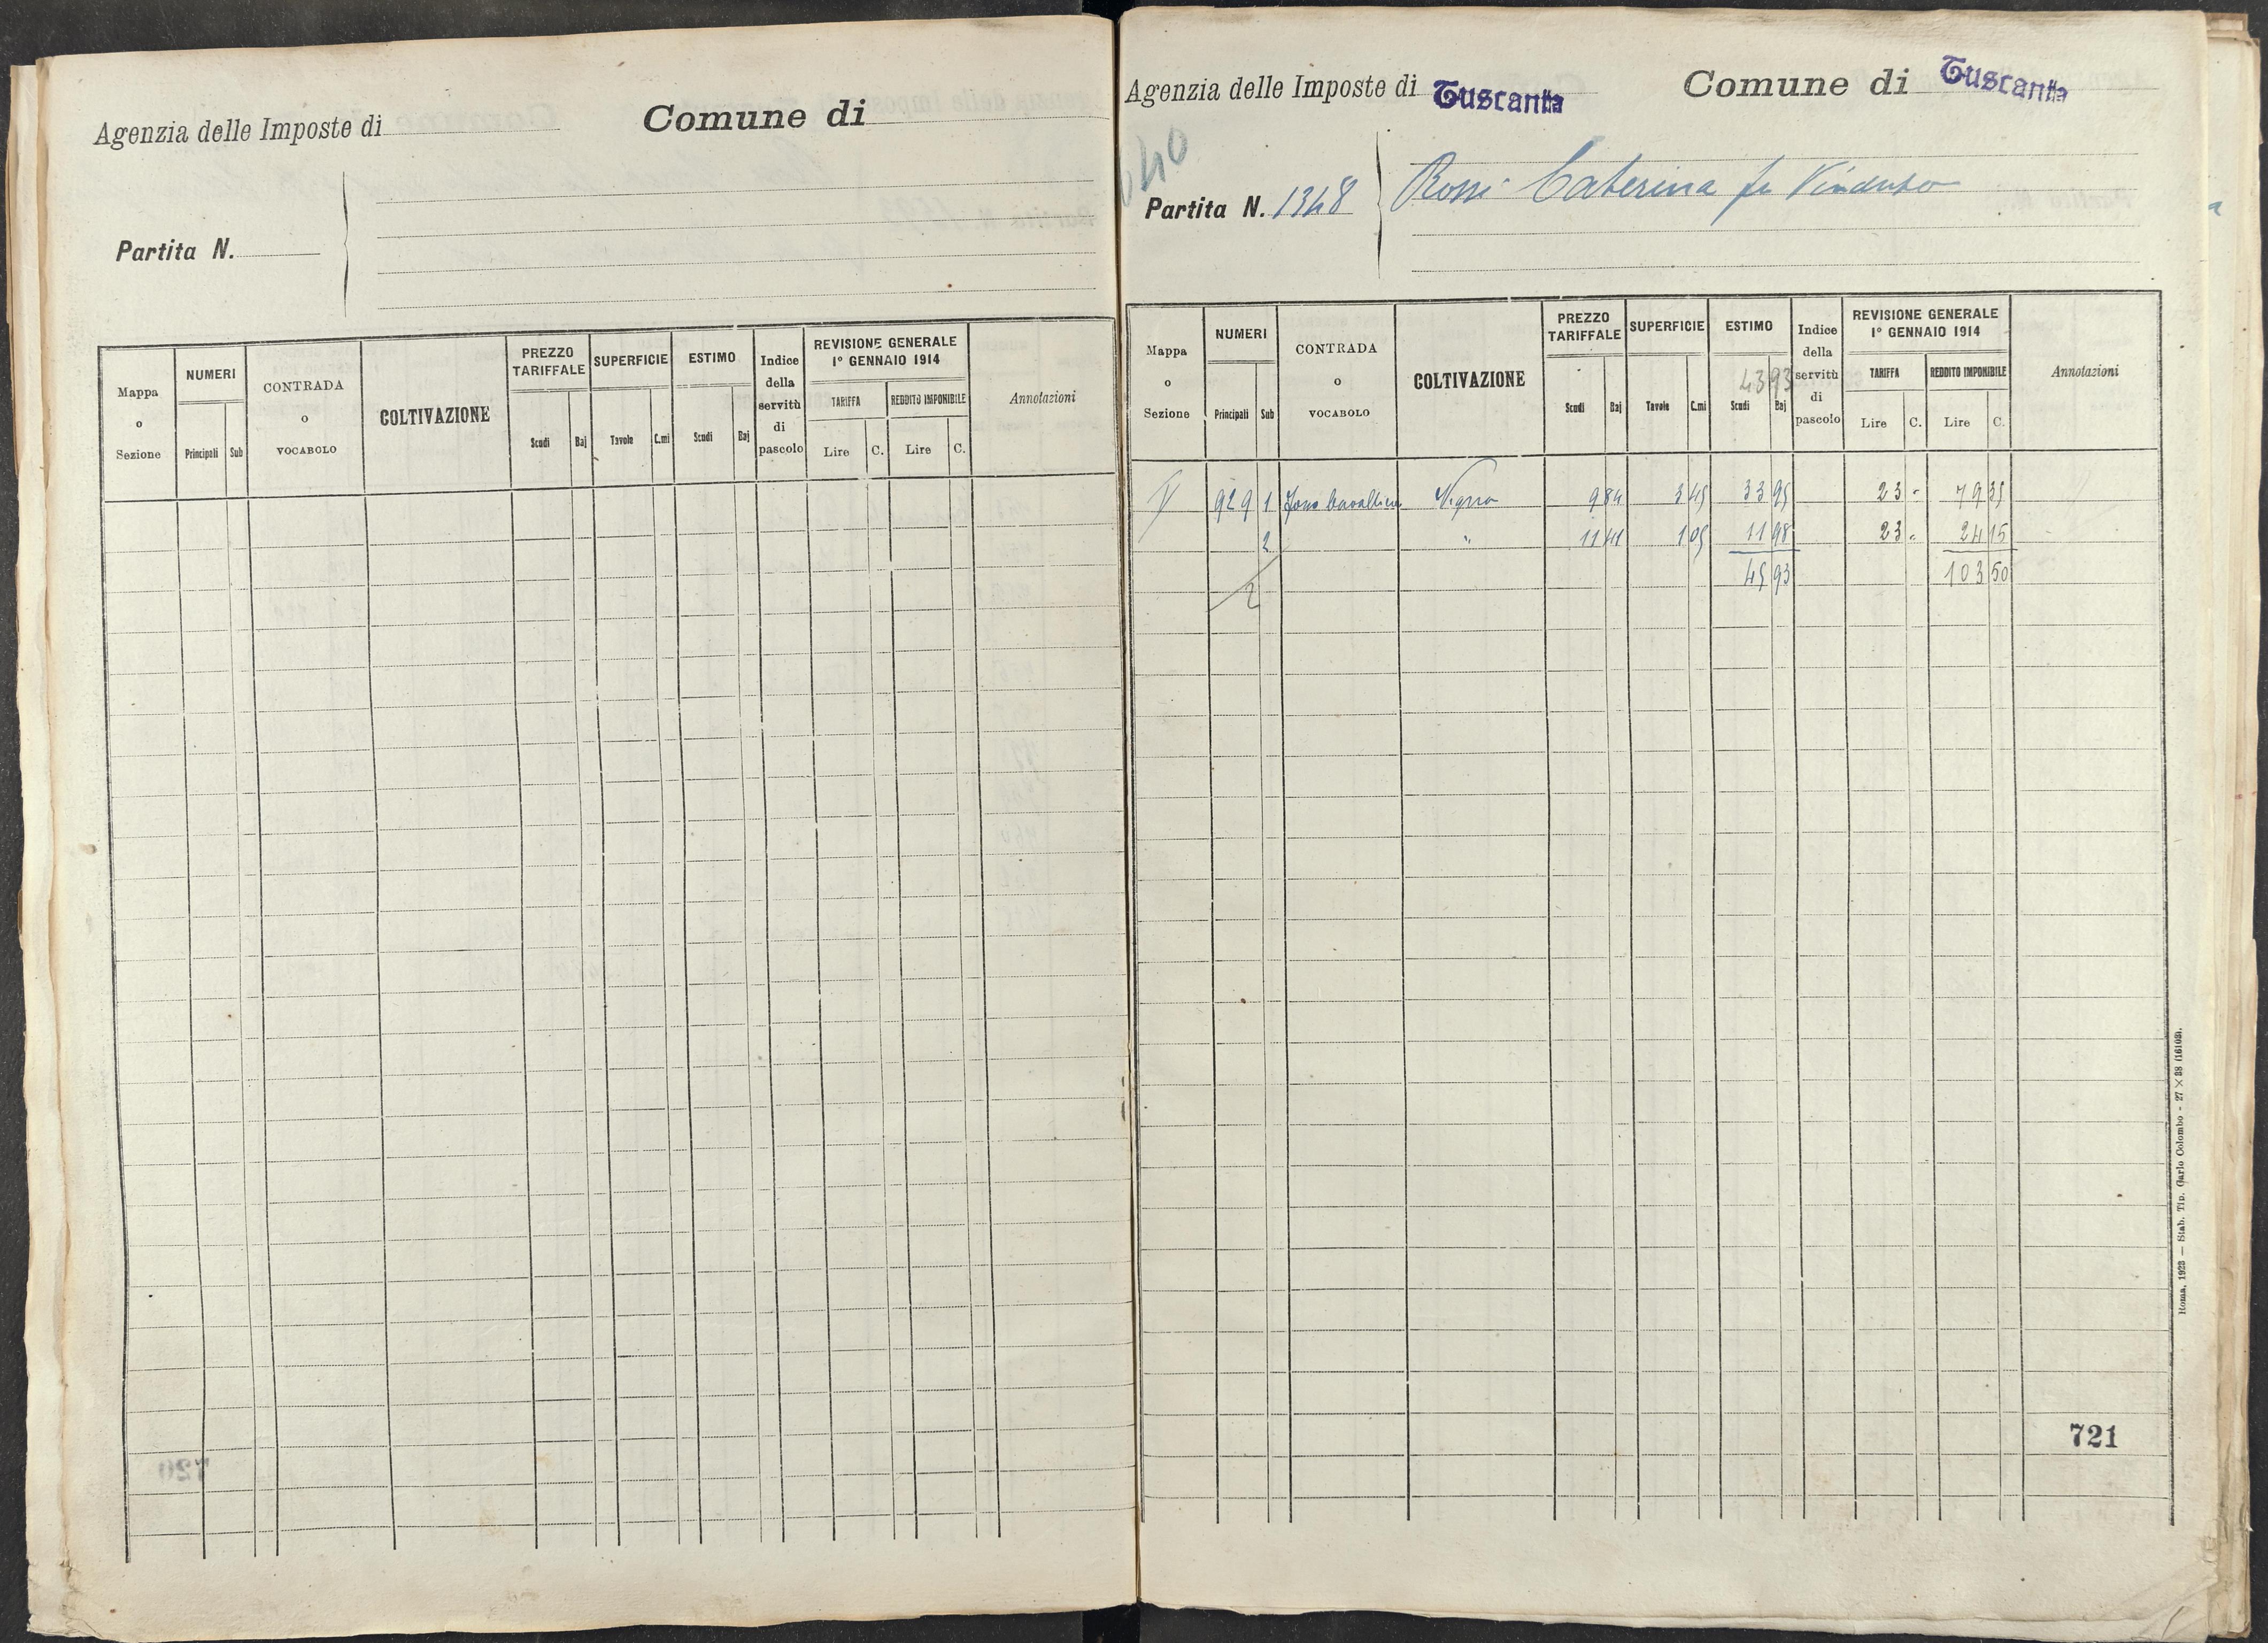 Agenzia delle Imposte di
Comune di
Partita N.
Mappa o Sezione
NUMERI
Principali Sub
CONTRADA o VOCABOLO
COLTIVAZIONE
PREZZO TARIFFALE
Scudi Baj
SUPERFICIE
Tavole C.mi
ESTIMO
Scudi Baj
Indice della servitù di pascolo
REVISIONE GENERALE
1º GENNAIO 1914
TARIFFA
Lire C.
REDDITO IMPONIBILE
Lire C.
Annotazioni
Agenzia delle Imposte di Tuscania
Comune di Tuscania
Partita N. 1348
Rossi Caterina fu
Mappa o Sezione
NUMERI
Principali Sub
CONTRADA o VOCABOLO
COLTIVAZIONE
PREZZO TARIFFALE
Scudi Baj
SUPERFICIE
Tavole C.mi
ESTIMO
4393
Scudi Baj
Indice della servitù di pascolo
REVISIONE GENERALE
1º GENNAIO 1914
TARIFFA
Lire C.
REDDITO IMPONIBILE
Lire C.
Annotazioni
929 1 Vigna 9 84 3 45 33 95 23 - 79 35
2 " 11 41 1 05 11 98 23 - 24 15
45 93 103 50
2
721
Roma, 1923 — Stab. Tip. Carlo Colombo - 27 × 38 (16102).